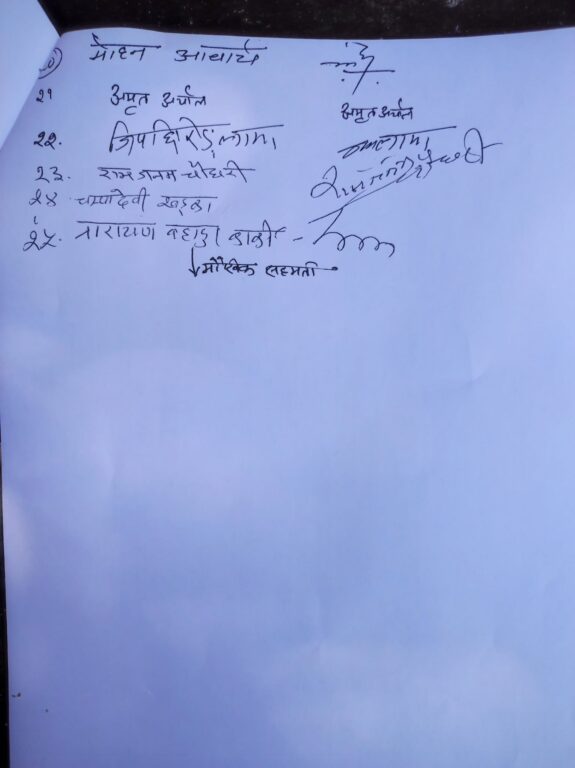 मोहन आचार्य
२१ अमृत अर्याल अमृत अर्याल
२२. लामा
२३. राम जनम चौधरी राम जनम चौधरी
२४ चम्पादेवी खड्का
२५. नारायण बहादुर कार्की -
↓ मौखिक सहमती